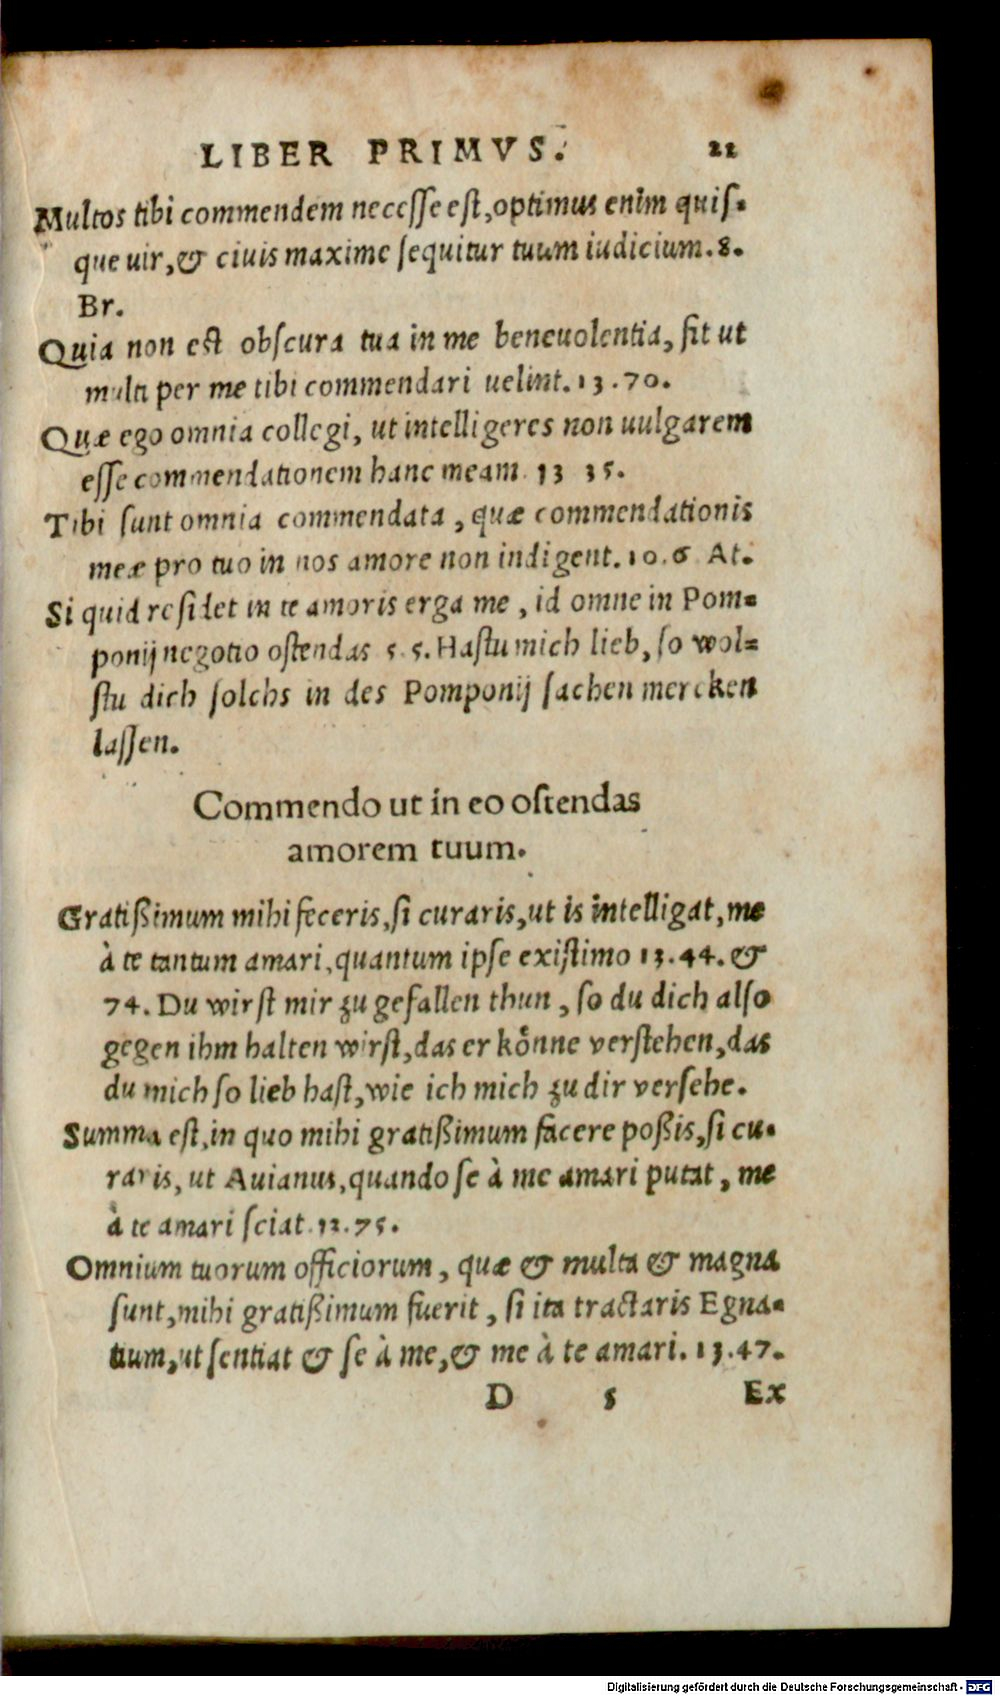 LIBER PRIMVS. 21
Multos tibi commendem necesse est, optimus enim quis-
que uir, & ciuis maxime sequitur tuum iudicium. 8.
Br.
Quia non est obscura tua in me beneuolentia, fit ut
multi per me tibi commendari uelint. 13. 70.
Quæ ego omnia collegi, ut intelligeres non uulgarem
esse commendationem hanc meam. 13 35.
Tibi sunt omnia commendata, quæ commendationis
meæ pro tuo in nos amore non indigent. 10. 6 At.
Si quid residet in te amoris erga me, id omne in Pom-
ponij negotio ostendas 5. 5. Hastu mich lieb, so wol-
stu dich solchs in des Pomponij sachen mercken
lassen.
Commendo ut in eo ostendas
amorem tuum.
Gratißimum mihi feceris, si curaris, ut is intelligat, me
à te tantum amari, quantum ipse existimo 13. 44. &
74. Du wirst mir zu gefallen thun, so du dich also
gegen ihm halten wirst, das er koͤnne verstehen, das
du mich so lieb hast, wie ich mich zu dir versehe.
Summa est, in quo mihi gratißimum facere poßis, si cu-
raris, ut Auianus, quando se à me amari putat, me
à te amari sciat. 12. 75.
Omnium tuorum officiorum, quæ & multa & magna
sunt, mihi gratißimum fuerit, si ita tractaris Egna-
tium, ut sentiat & se à me, & me à te amari. 13. 47.
D 5 Ex
Digitalisierung gefördert durch die Deutsche Forschungsgemeinschaft - DFG